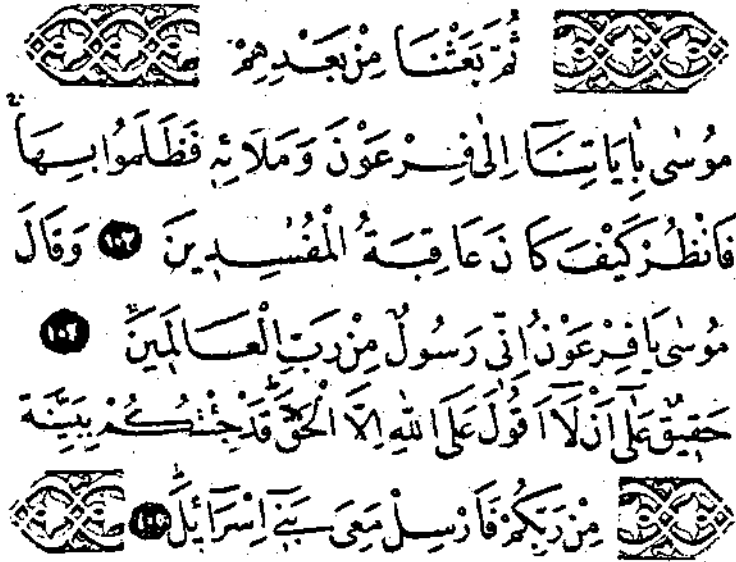 ثُمَّ بَعَثْنَا مِنْ بَعْدِهِمْ
مُوسٰى بِاٰيَاتِنَٓا اِلٰى فِرْعَوْنَ وَمَلَا۬ئِه۪ فَظَلَمُوا بِهَاۚ
فَانْظُرْ كَيْفَ كَانَ عَاقِبَةُ الْمُفْسِد۪ينَ ﴿١٠٣﴾ وَقَالَ
مُوسٰى يَا فِرْعَوْنُ اِنّ۪ي رَسُولٌ مِنْ رَبِّ الْعَالَم۪ينَۙ ﴿١٠٤﴾
حَق۪يقٌ عَلٰٓى اَنْ لَٓا اَقُولَ عَلَى اللّٰهِ اِلَّا الْحَقَّۜ قَدْ جِئْتُكُمْ بِبَيِّنَةٍ
مِنْ رَبِّكُمْ فَاَرْسِلْ مَعِيَ بَن۪ٓي اِسْرَٓائ۪لَۜ ﴿١٠٥﴾